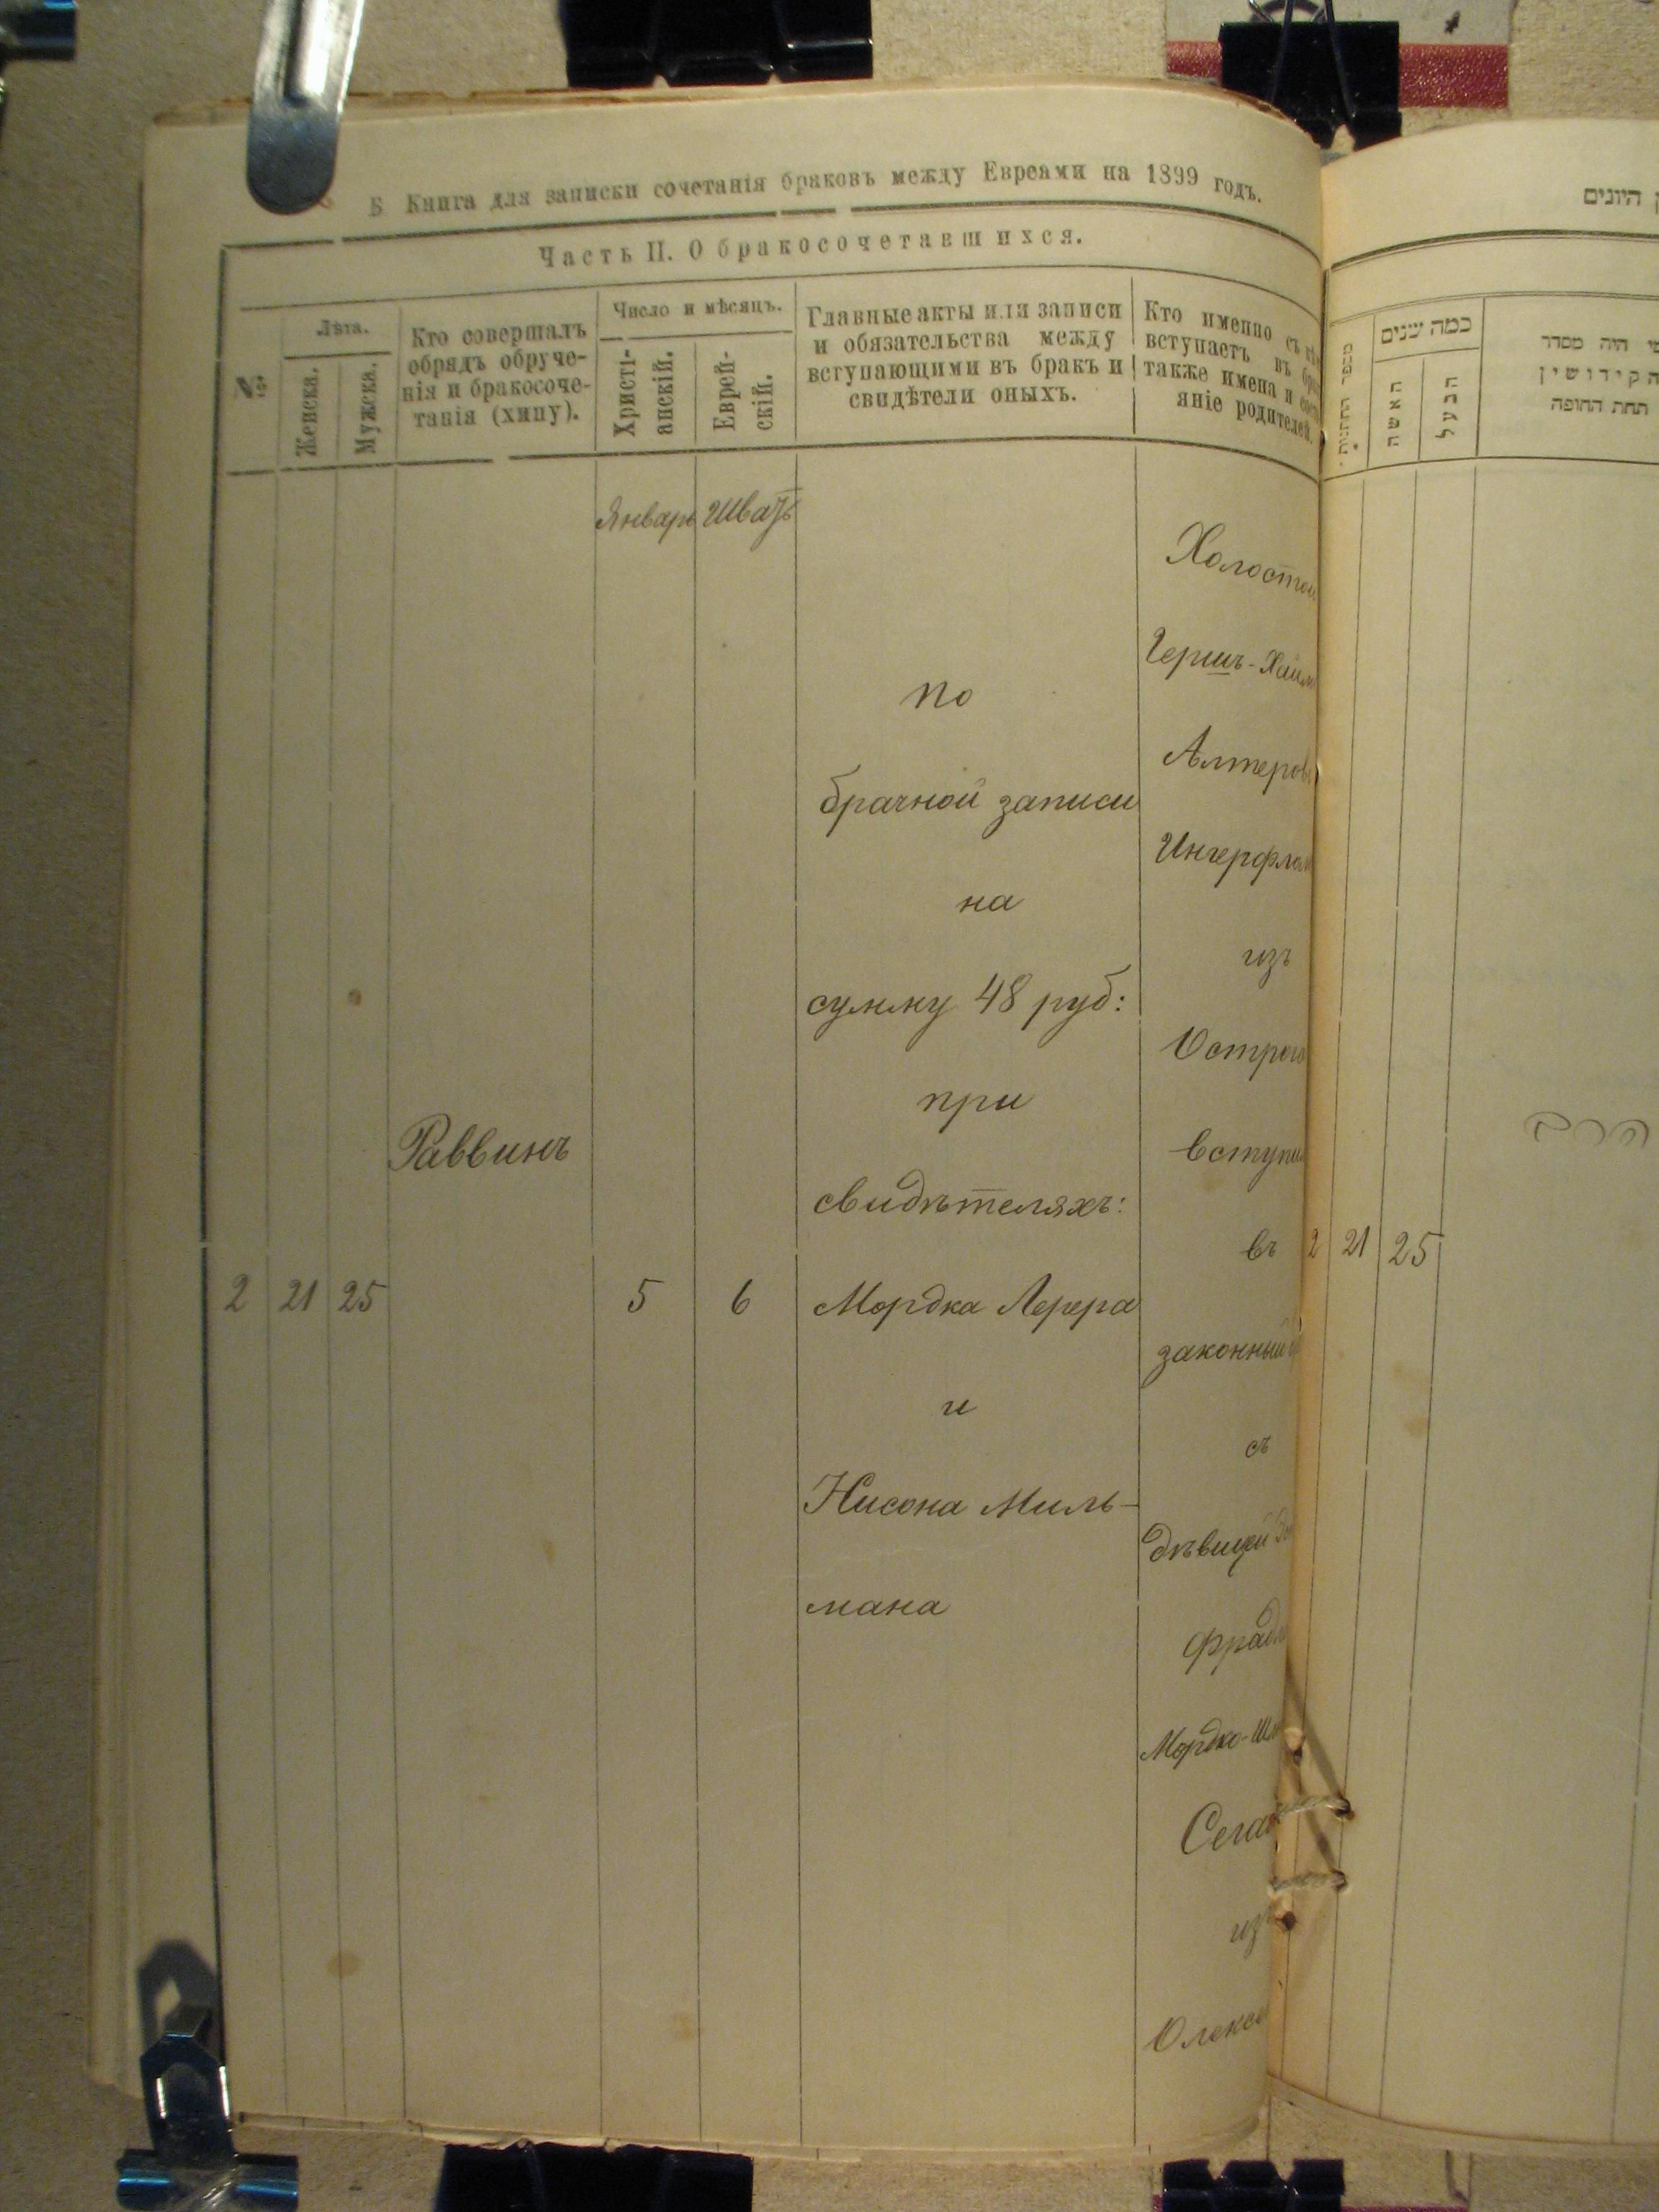 Б Книга для записки сочетанія браковъ между Евреями на 1899 годъ.
Часть II. О бракосочетавшихся.
№
Лѣта.
Женска.
Мужска.
Кто совершалъ
обрядъ обруче-
нія и бракосоче-
танія (хипу).
Число и мѣсяцъ.
Христі-
анскій.
Еврей-
скій.
Главные акты или записи
и обязательства между
вступающими въ бракъ и
свидѣтели оныхъ.
Кто именно съ
вступаетъ въ
также имена и
яніе родителей.
Январь Шватъ
2 21 25
Раввинъ
5 6
по
брачной записи
на
сумму 48 руб:
при
свидѣтеляхъ:
Мордка Лерера
и
Нисона Миль-
мана
Холостой
Гершъ-Хаим
Алтеров
Ингерфлом
изъ
Острого
вступил
въ
законный
съ
дѣвицей
Фрадл
Мордко-Шл
Сегал
изъ
Олекс
היונים
מספר החתונות
כמה שנים
האשה
הבעל
מי היה מסדר
הקידושין
תחת החופה
2 21 25
הרב